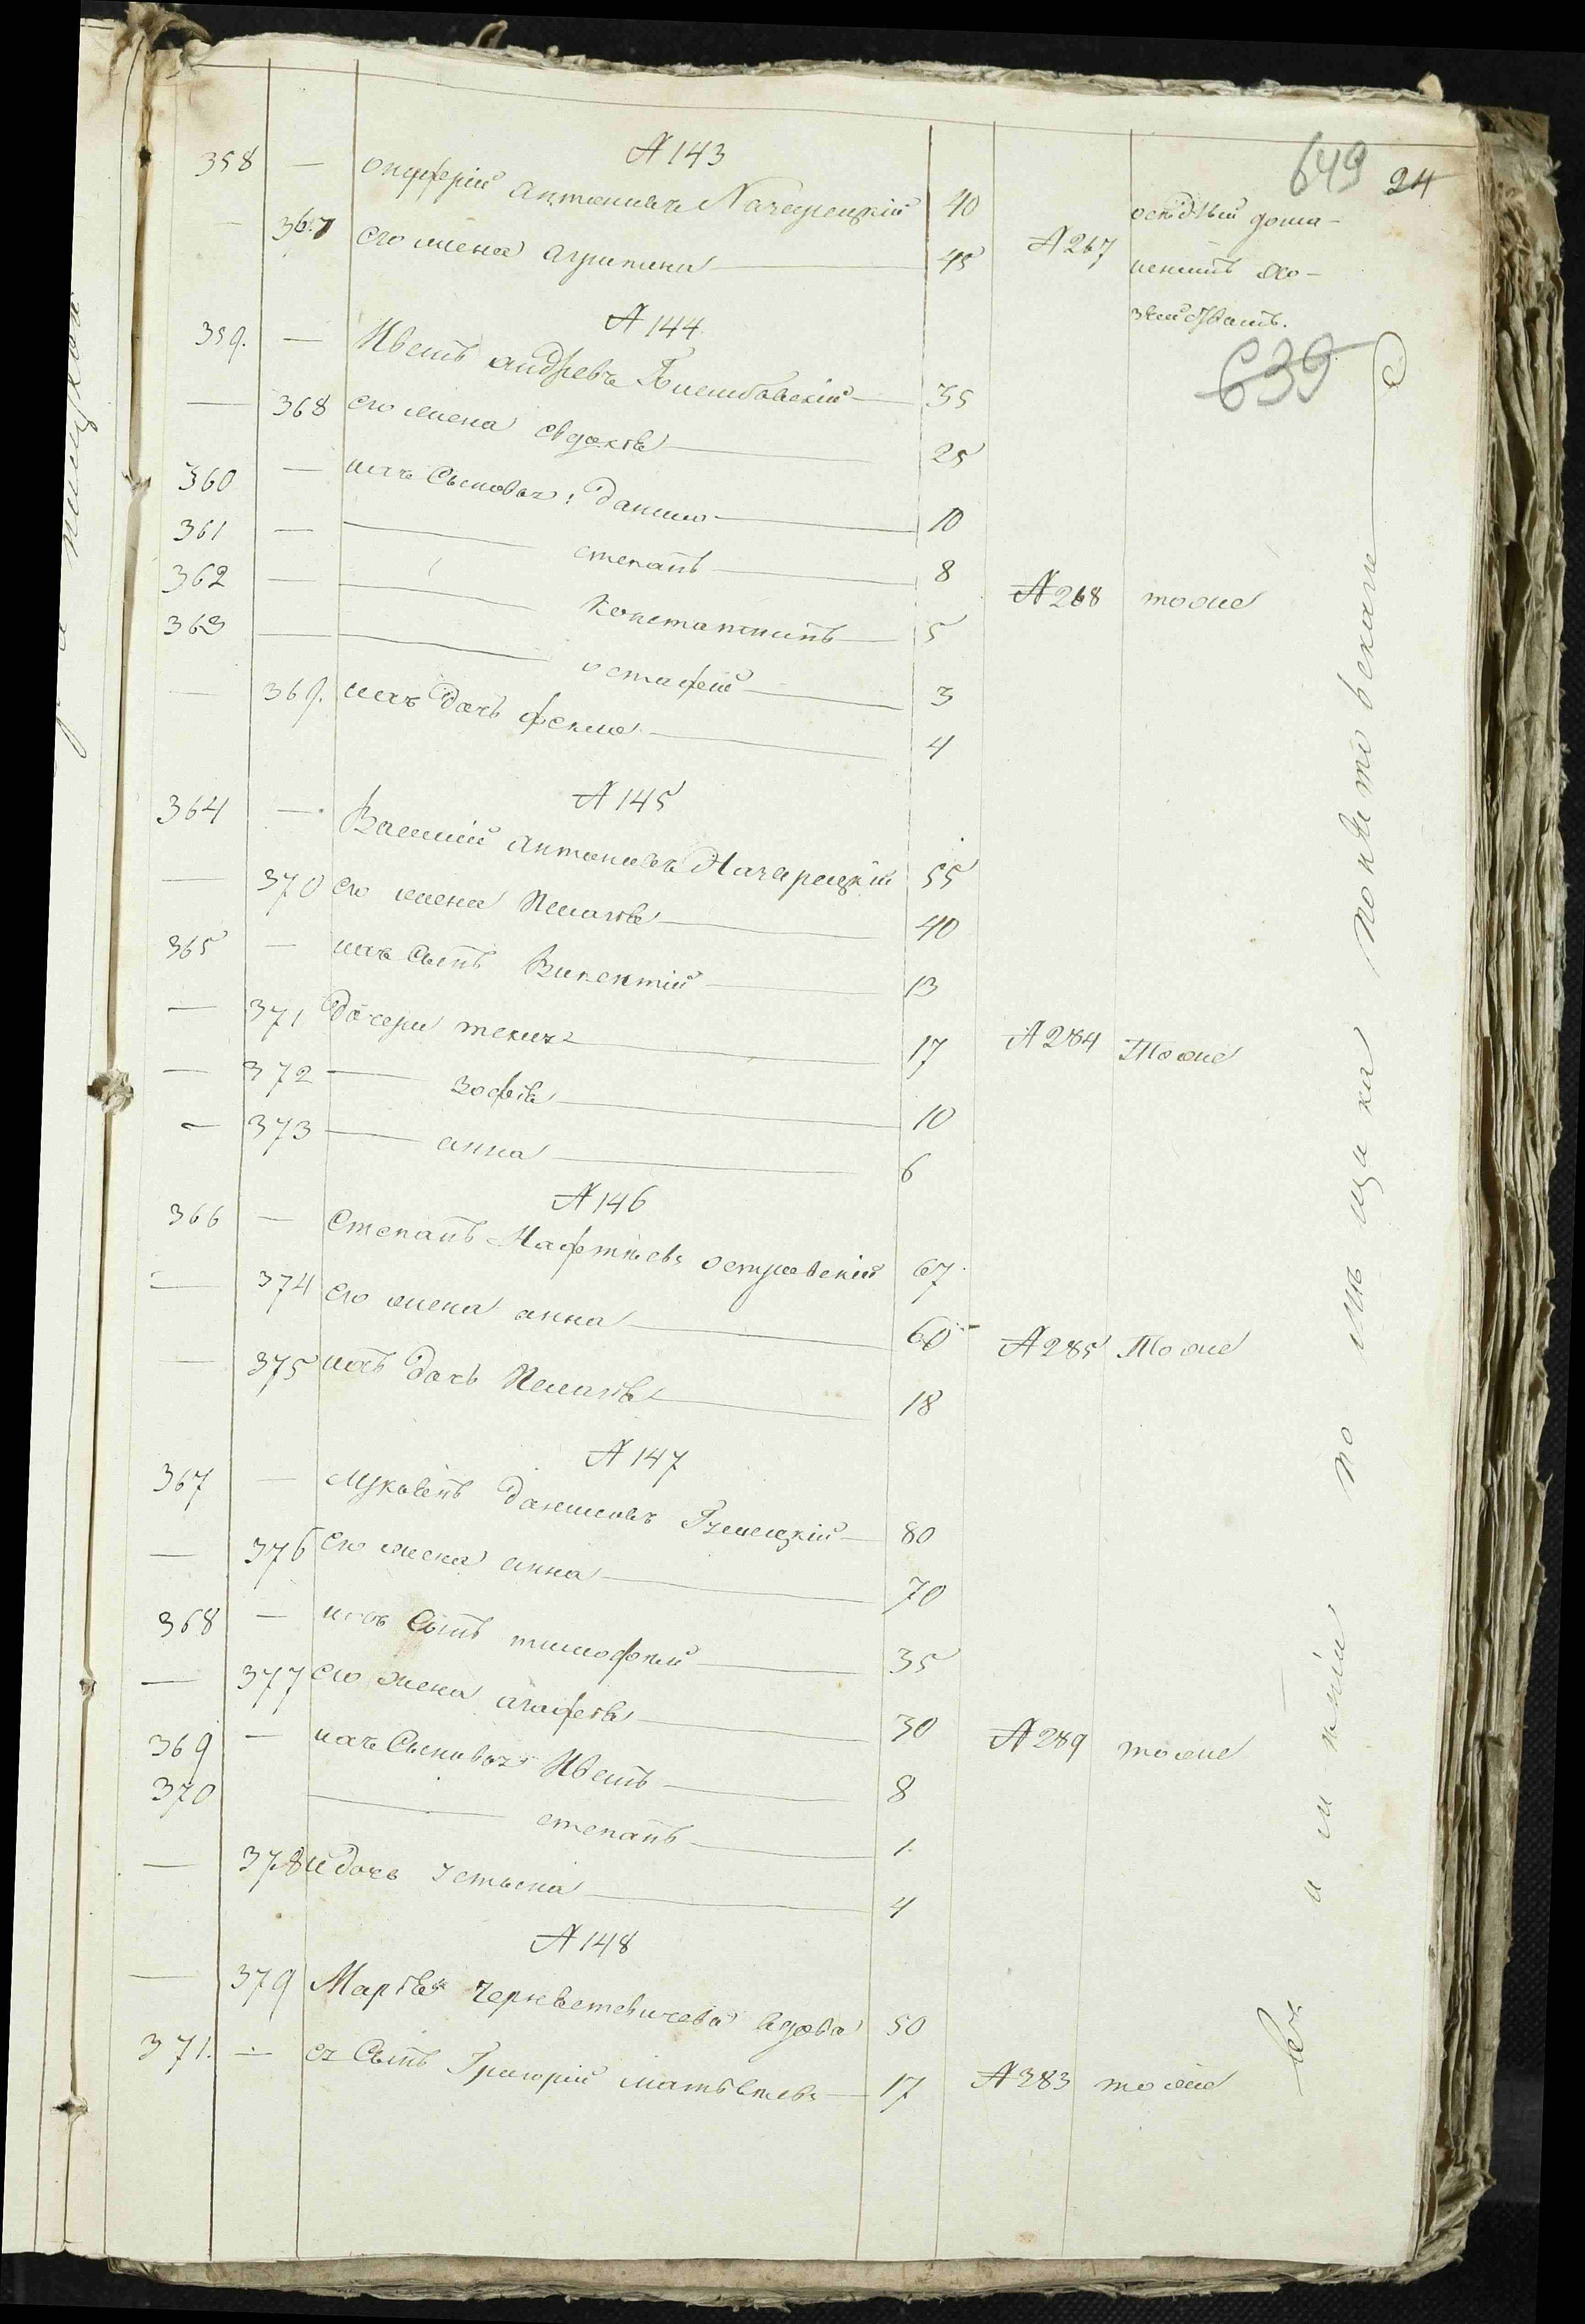 649 24
№ 143
358 — онуфрій антоновъ Качерецкій 40
— 367 его жена агрипина — 45 № 267 осѣдлый дома-
нениѣ хо-
зяйствомъ.
639
№ 144
359. — Иванъ андреевъ — 35
— 368 его жена евдокія — 25
360 — ихъ Сыновья: Данило — 10
361 — — степанъ — 8
362 — — Константинъ — 5 № 268 тоже
363 — — остафей — 3
— 369. ихъ дочь фекла — 4
№ 145
364 — Василій антоновъ Качерецкій 55
— 370 его жена Пелагія — 40
365 — ихъ Сынъ Викентій — 13
— 371 дочери текля — 17 № 284 Тоже
— 372 — зофія — 10
— 373 — анна — 6
№ 146
366 — Степанъ островскій 67
— 374 его жена анна — 60 № 285 Тоже
— 375 ихъ дочь Пелагія — 18
№ 147
367 — Даниловъ — 80
— 376 его жена анна — 70
368 — ихъ Сынъ тимофей — 35
— 377 его жена агафія — 30 № 289 тоже
369 — ихъ Сыновья Иванъ — 8
370 — степанъ — 1
— 378 и дочь устинa — 4
№ 148
— 379 Марія вдова 50
371. — ея Сынъ Григорій матвѣевъ — 17 № 383 тоже
въ имѣніи помѣщика понятовскаго